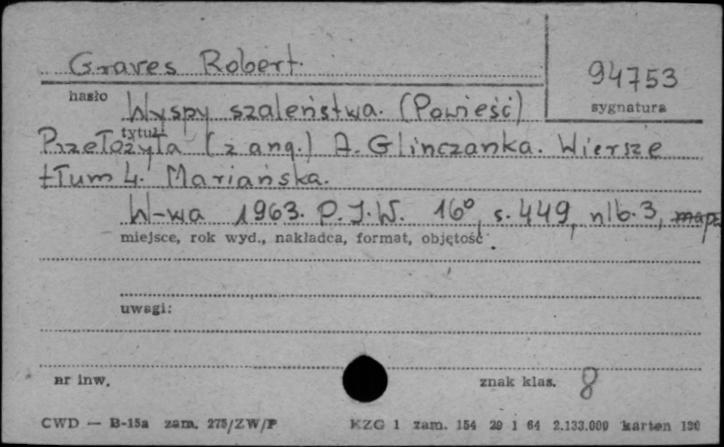 Graves Robert.
94753
hasło
sygnatura
Wyspy szaleństwa. (Powieść)
tytuł:
Przełożyła (z ang.) A. Glinczanka. Wiersze
tłum Ł. Mariańska.
W-wa 1963. P.I.W. 16°, s. 449, nlb. 3,
miejsce, rok wyd., nakładca, format, objętość
uwagi:
nr inw.
znak klas. 8
CWD — B-15a zam. 275/ZW/P
KZG 1 zam. 154 29 1 64 2.133.000 karten 120